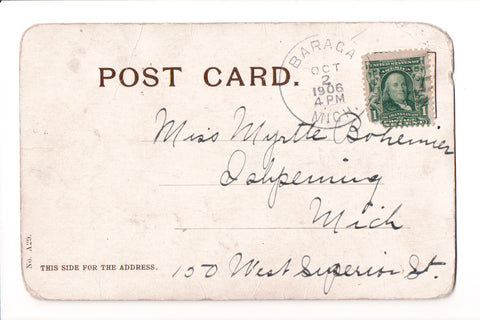 POST CARD.
BARAGA
OCT
2
1906
4 PM
MICH.
Miss Myrtle Bohemier
Ishpeming
Mich
150 West Superior St.
THIS SIDE FOR THE ADDRESS.
No. A29.